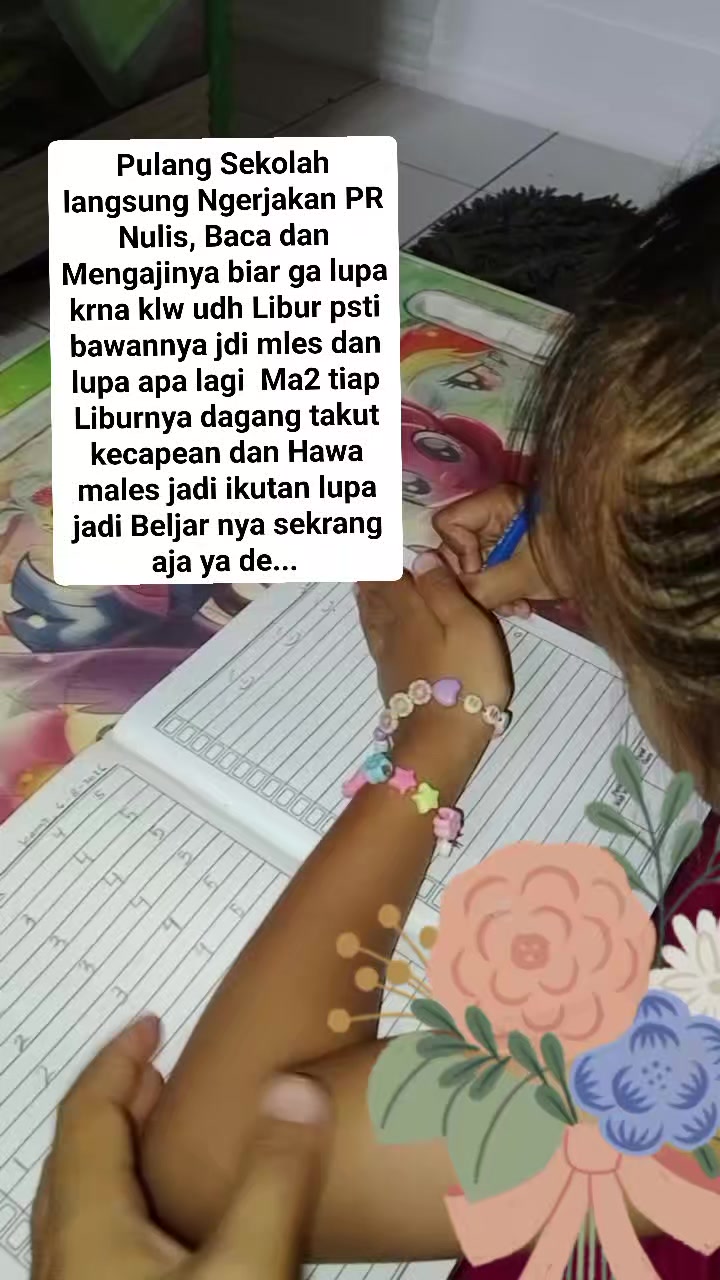 Pulang Sekolah
langsung Ngerjakan PR
Nulis, Baca dan
Mengajinya biar ga lupa
krna klw udh Libur psti
bawannya jdi mles dan
lupa apa lagi Ma2 tiap
Liburnya dagang takut
kecapean dan Hawa
males jadi ikutan lupa
jadi Beljar nya sekrang
aja ya de...